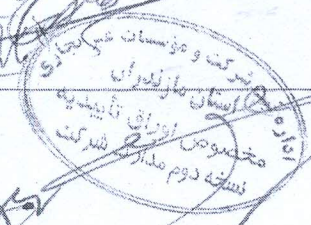 اداره ثبت شرکت و مؤسسات غیرتجاری
استان مازندران
مخصوص اوراق تأییدیه
نسخه دوم مدارک شرکت